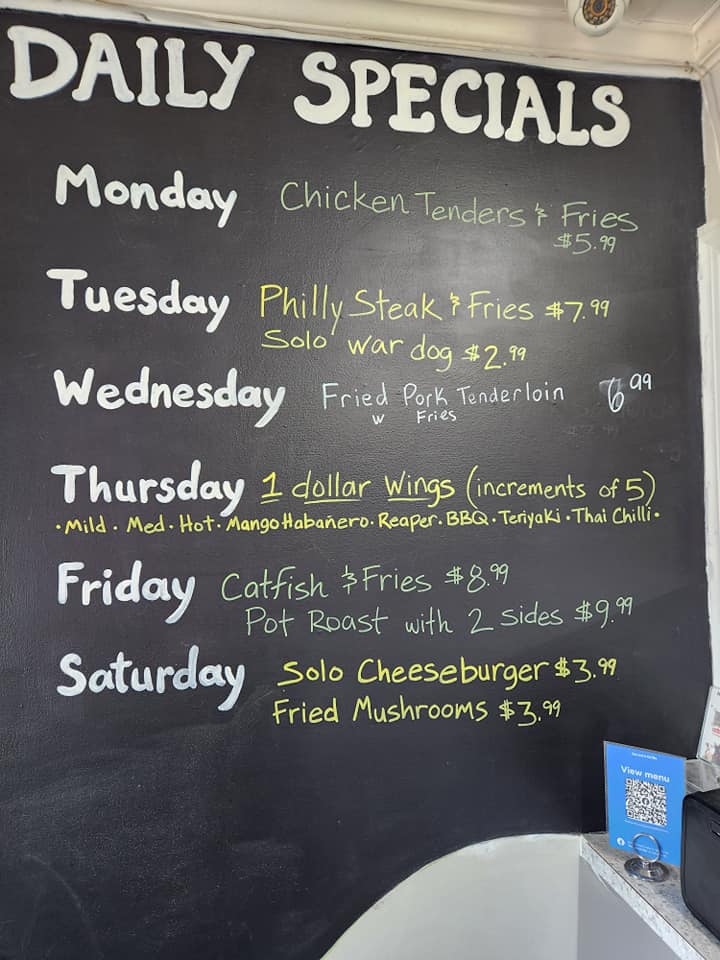 DAILY SPECIALS
Monday Chicken Tenders & Fries
$5.99
Tuesday Philly Steak & Fries $7.99
Solo war dog $2.99
Wednesday Fried Pork Tenderloin 6.99
w Fries
Thursday 1 dollar Wings (increments of 5)
• Mild • Med • Hot • Mango Habañero • Reaper • BBQ • Teriyaki • Thai Chilli •
Friday Catfish & Fries $8.99
Pot Roast with 2 sides $9.99
Saturday Solo Cheeseburger $3.99
Fried Mushrooms $3.99
View menu